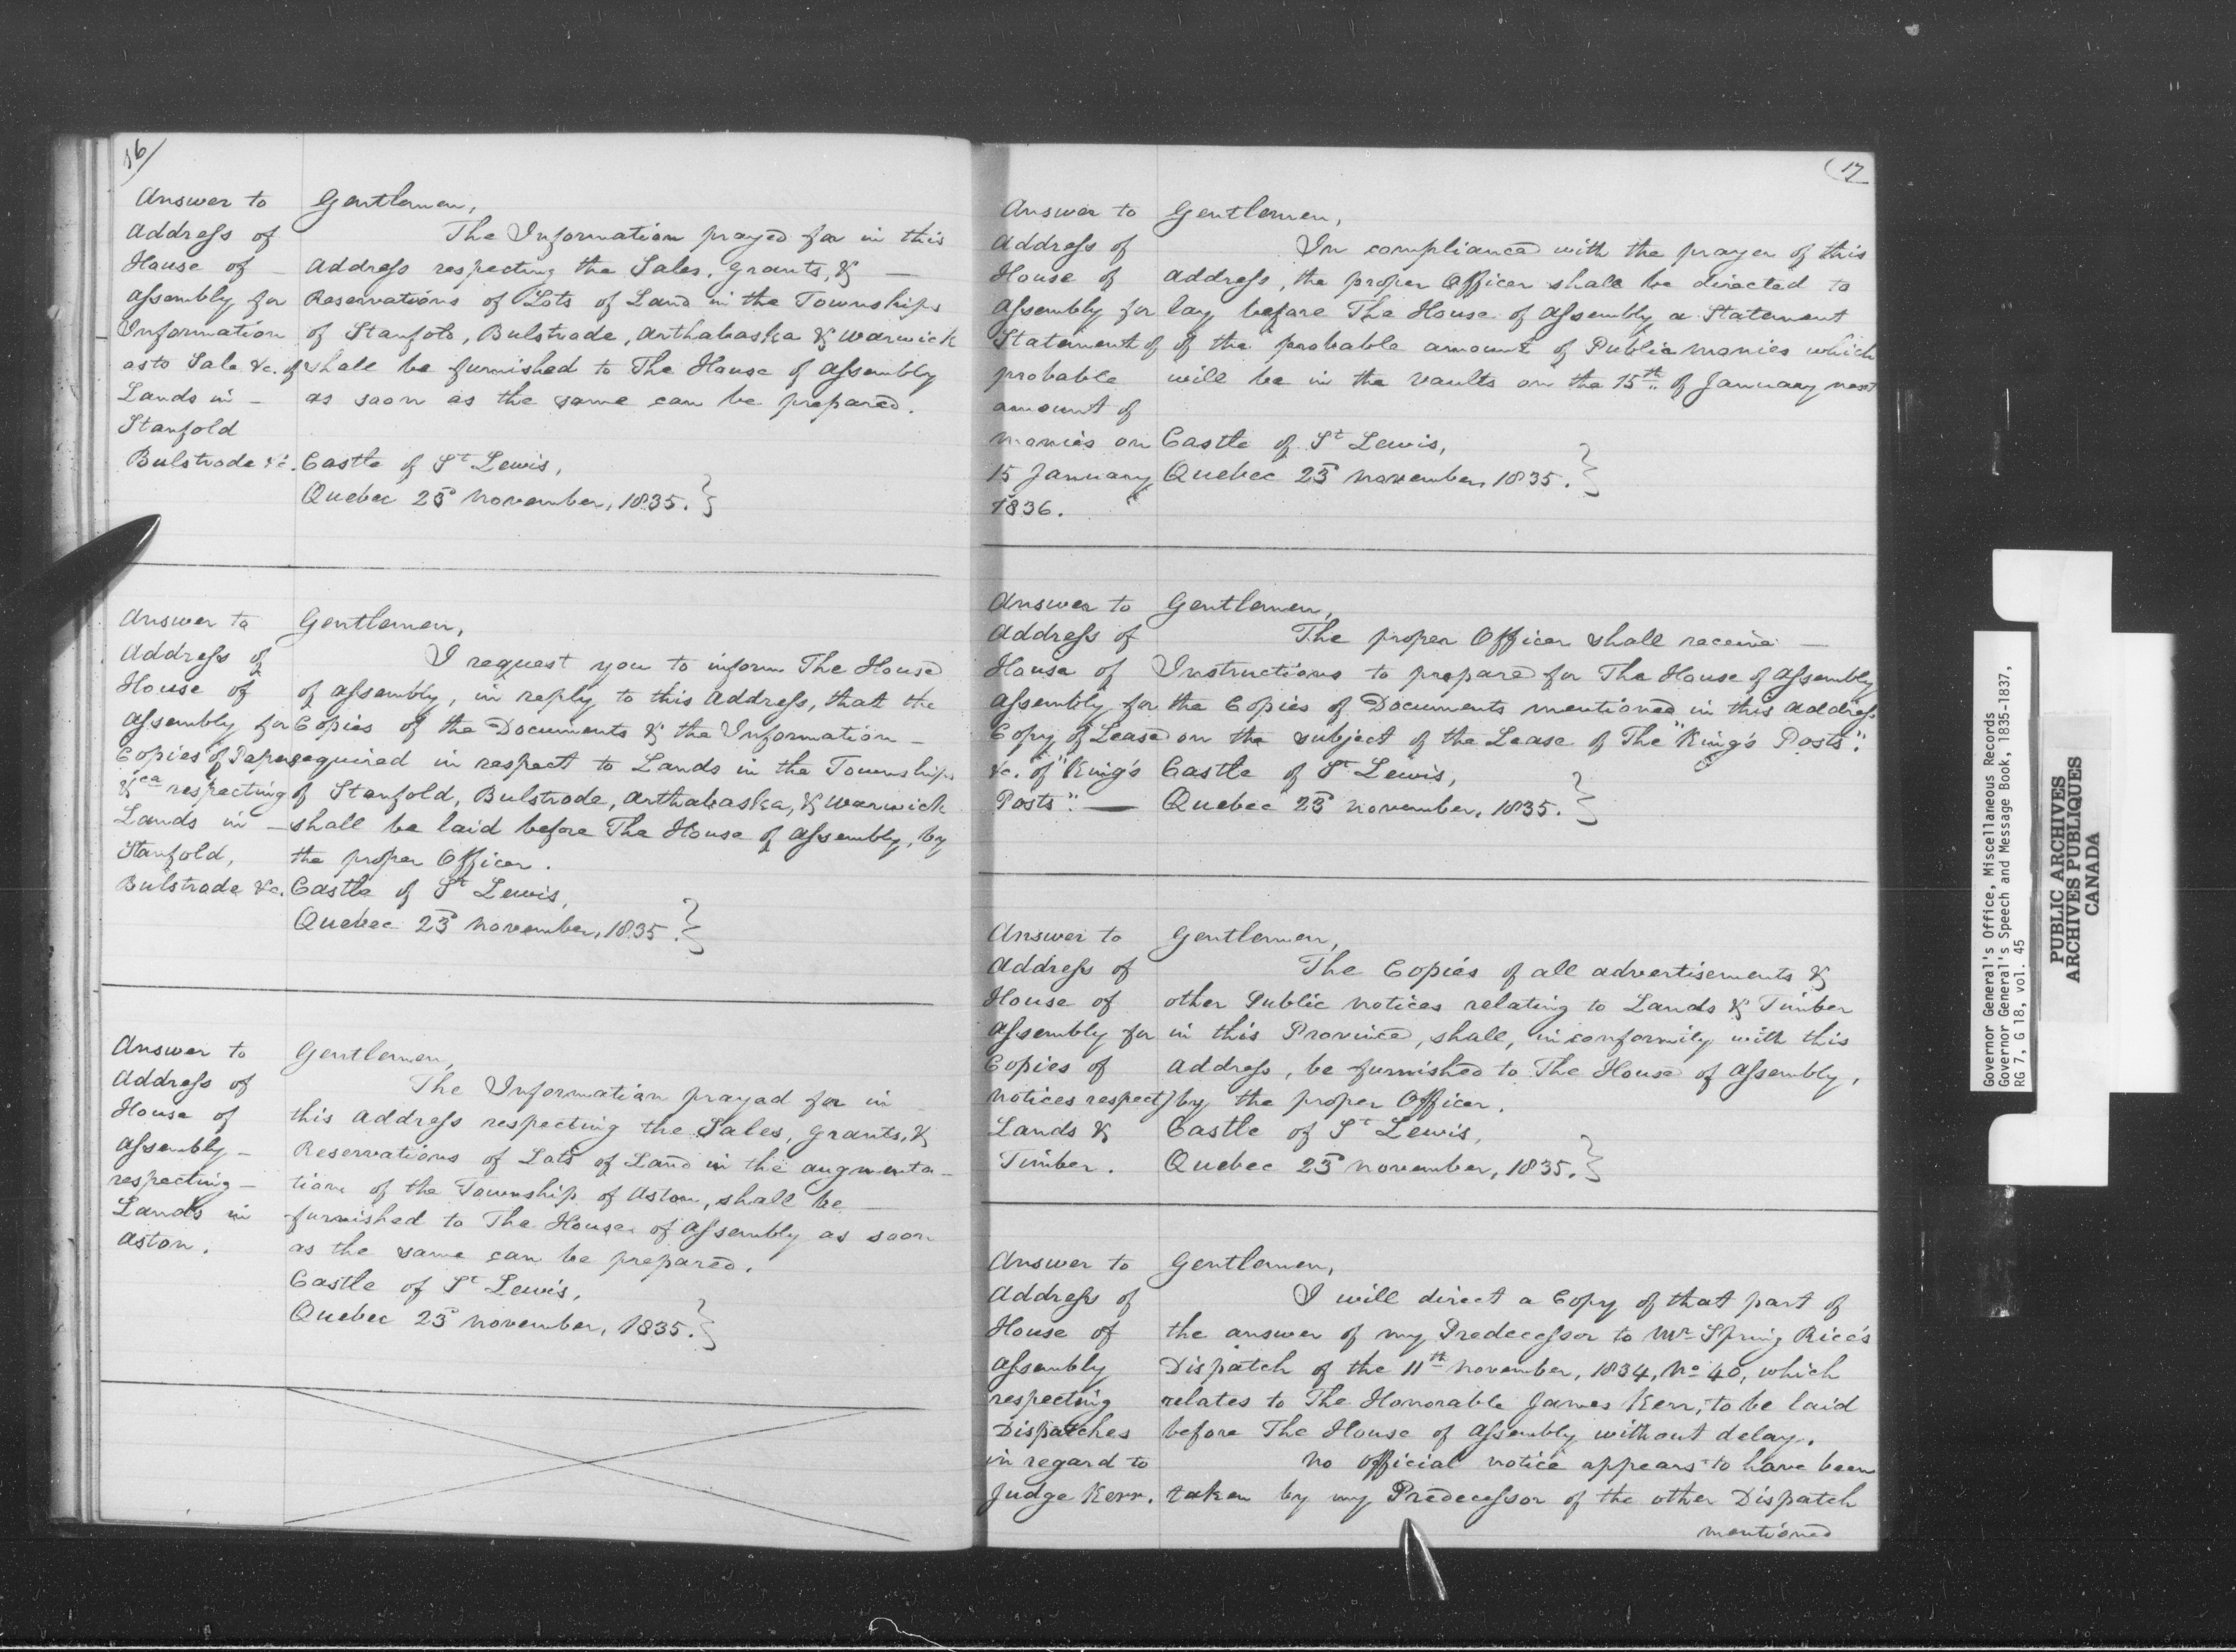 16/
Answer to
Address of
House of _
Assembly for
Information
as to Sale &c. of
Lands in _
Stanfold
Bulstrode &c.
Gentlemen,
The Information prayed for in this
Address respecting the Sales, Grants, & _
Reservations of Lots of Land in the Townships
of Stanfold, Bulstrode, Arthabaska & Warwick
shall be furnished to The House of Assembly
as soon as the same can be prepared.
Castle of St Lewis,
Quebec 23d November, 1835.
Answer to
Address of
House of
Assembly for
Copies of Papers
&ca respecting
Lands in _
Stanfold,
Bulstrode &c.
Gentlemen,
I request you to inform The House
of Assembly, in reply to this Address, that the
Copies of the Documents & the Information _
required in respect to Lands in the Townships
of Stanfold, Bulstrode, Arthabaska, & Warwick
shall be laid before The House of Assembly, by
the proper Officer.
Castle of St Lewis,
Quebec 23d November, 1835.
Answer to
Address of
House of
Assembly _
respecting _
Lands in
Aston.
Gentlemen,
The Information prayed for in
this Address respecting the Sales, Grants, &
Reservations of Lots of Land in the augmenta-
tion of the Township of Aston, shall be _
furnished to The House of Assembly as soon
as the same can be prepared.
Castle of St Lewis,
Quebec 23d November, 1835.
(17
Answer to
Address of
House of
Assembly for
Statement of
probable
amount of
monies on
15 January
1836.
Gentlemen,
In compliance with the prayer of this
Address, the proper Officer shall be directed to
lay before The House of Assembly a Statement
of the probable amount of Public monies which
will be in the vaults on the 15th of January next
Castle of St Lewis,
Quebec 23d November, 1835.
Answer to
Address of
House of
Assembly for
Copy of Lease
&c. of "King's
Posts". —
Gentlemen,
The proper Officer shall receive _
Instructions to prepare for The House of Assembly
the Copies of Documents mentioned in this Address
on the subject of the Lease of The "King's Posts".
Castle of St Lewis,
Quebec 23d November, 1835.
Answer to
Address of
House of
Assembly for
Copies of
Notices respect)
Lands &
Timber.
Gentlemen,
The Copies of all advertisements &
other Public Notices relating to Lands & Timber
in this Province, shall, in conformity with this
Address, be furnished to The House of Assembly,
by the proper Officer.
Castle of St Lewis,
Quebec 23d November, 1835.
Answer to
Address of
House of
Assembly
respecting
Dispatches
in regard to
Judge Kerr.
Gentlemen,
I will direct a Copy of that part of
the answer of my Predecessor to Mr Spring Rice's
Dispatch of the 11th November, 1834, No 40, which
relates to The Honorable James Kerr, to be laid
before The House of Assembly without delay.
No official notice appears to have been
taken by my Predecessor of the other Dispatch
mentioned
Governor General's Office, Miscellaneous Records
Governor General's Speech and Message Book, 1835-1837,
RG 7, G 18, vol. 45
PUBLIC ARCHIVES
ARCHIVES PUBLIQUES
CANADA